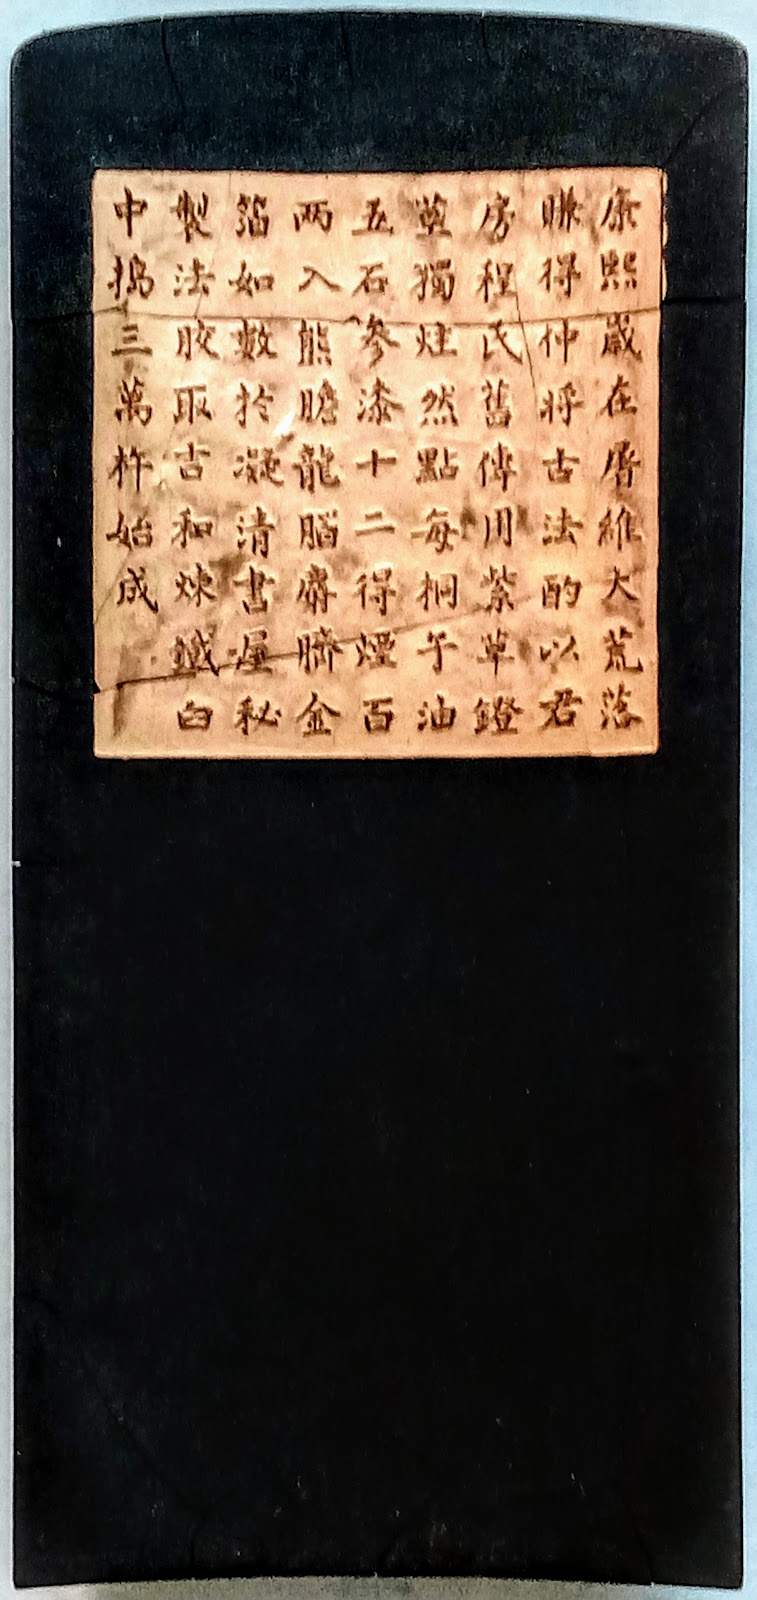 康熙歲在屠維大荒落
購得仲將古法酌以君
房程氏舊傳用紫草鐙
草獨炷然點每桐子油
五石參漆十二得煙百
两入熊膽龍腦麝臍金
箔如數於凝清書屋秘
製法胶取古和煉鐵臼
中搗三萬杵始成